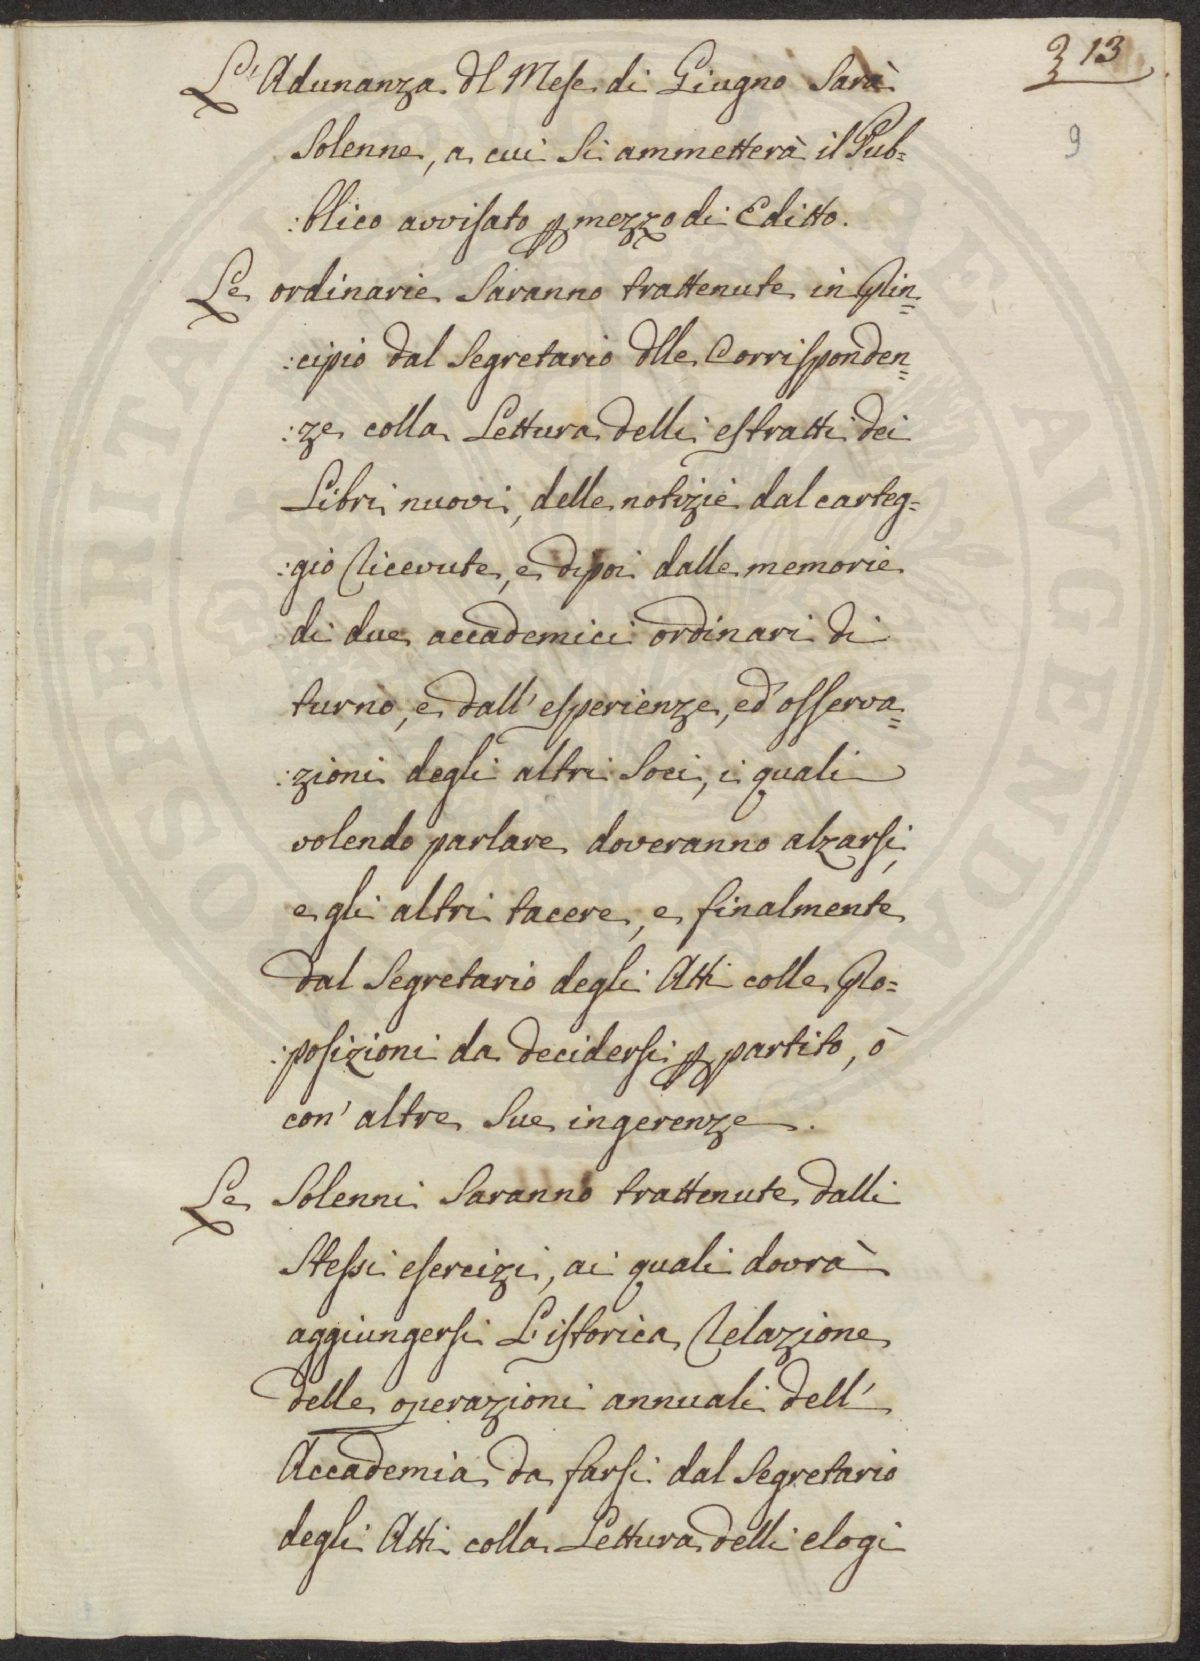 3 13
9
L'Adunanza dl Mese di Giugno Sarà
Solenne, a cui Si ammetterà il Pub=
:blico avvisato p mezzo di Editto.
Le ordinarie Saranno trattenute in Prin=
:cipio dal Segretario dlle Corrisponden=
:ze colla Lettura delli estratti dei
Libri nuovi, delle notizie dal carteg=
:gio Ricevute, e dipoi dalle memorie
di due accademici ordinari di
turno, e dall' esperienze, ed' osserva=
:zioni degli altri Soci, i quali
volendo parlare doveranno alzarsi,
e gli altri tacere, e finalmente
dal Segretario degli Atti colle Pro=
:posizioni da decidersi p partito, ò
con' altre Sue ingerenze.
Le Solenni Saranno trattenute dalli
Stessi esercizi, ai quali dovrà
aggiungersi L'istorica Relazione
delle operazioni annuali dell'
Accademia da farsi dal Segretario
degli Atti colla Lettura delli elogi
PROSPERITATI PUBLICAE AUGENDAE